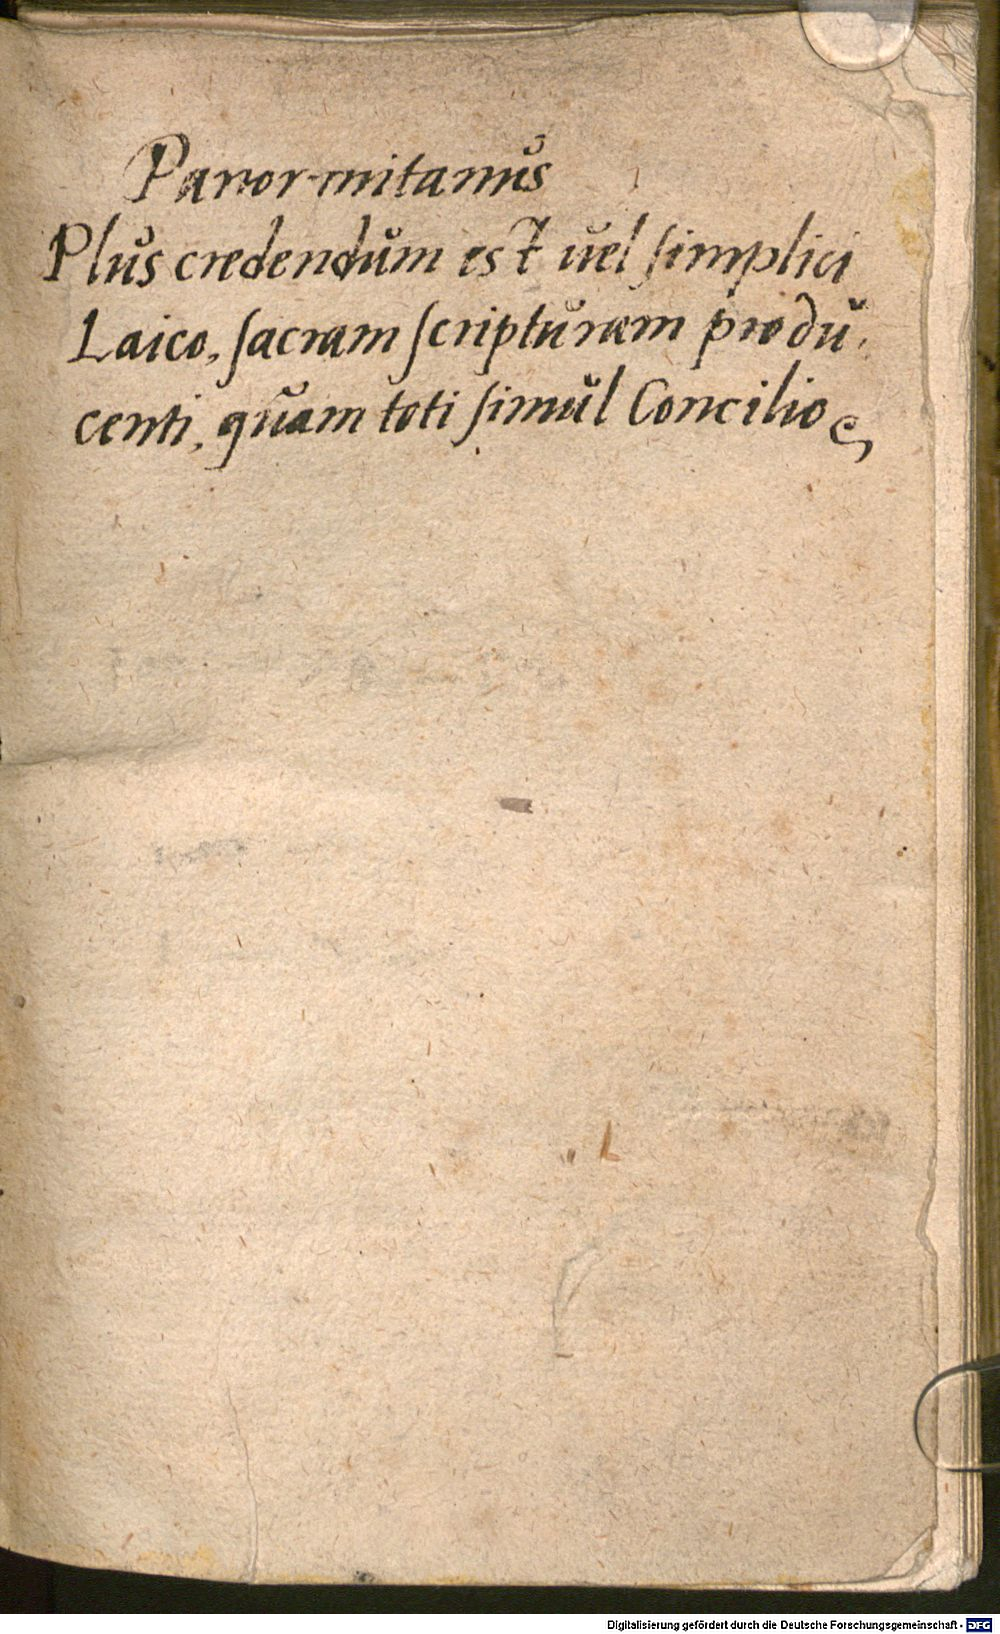 Panormitanus
Plus credendum est uel ſimplici
Laico, ſacram ſcripturam produ,
centi, quam toti ſimul Concilio
Digitalisierung gefördert durch die Deutsche Forschungsgemeinschaft - DFG